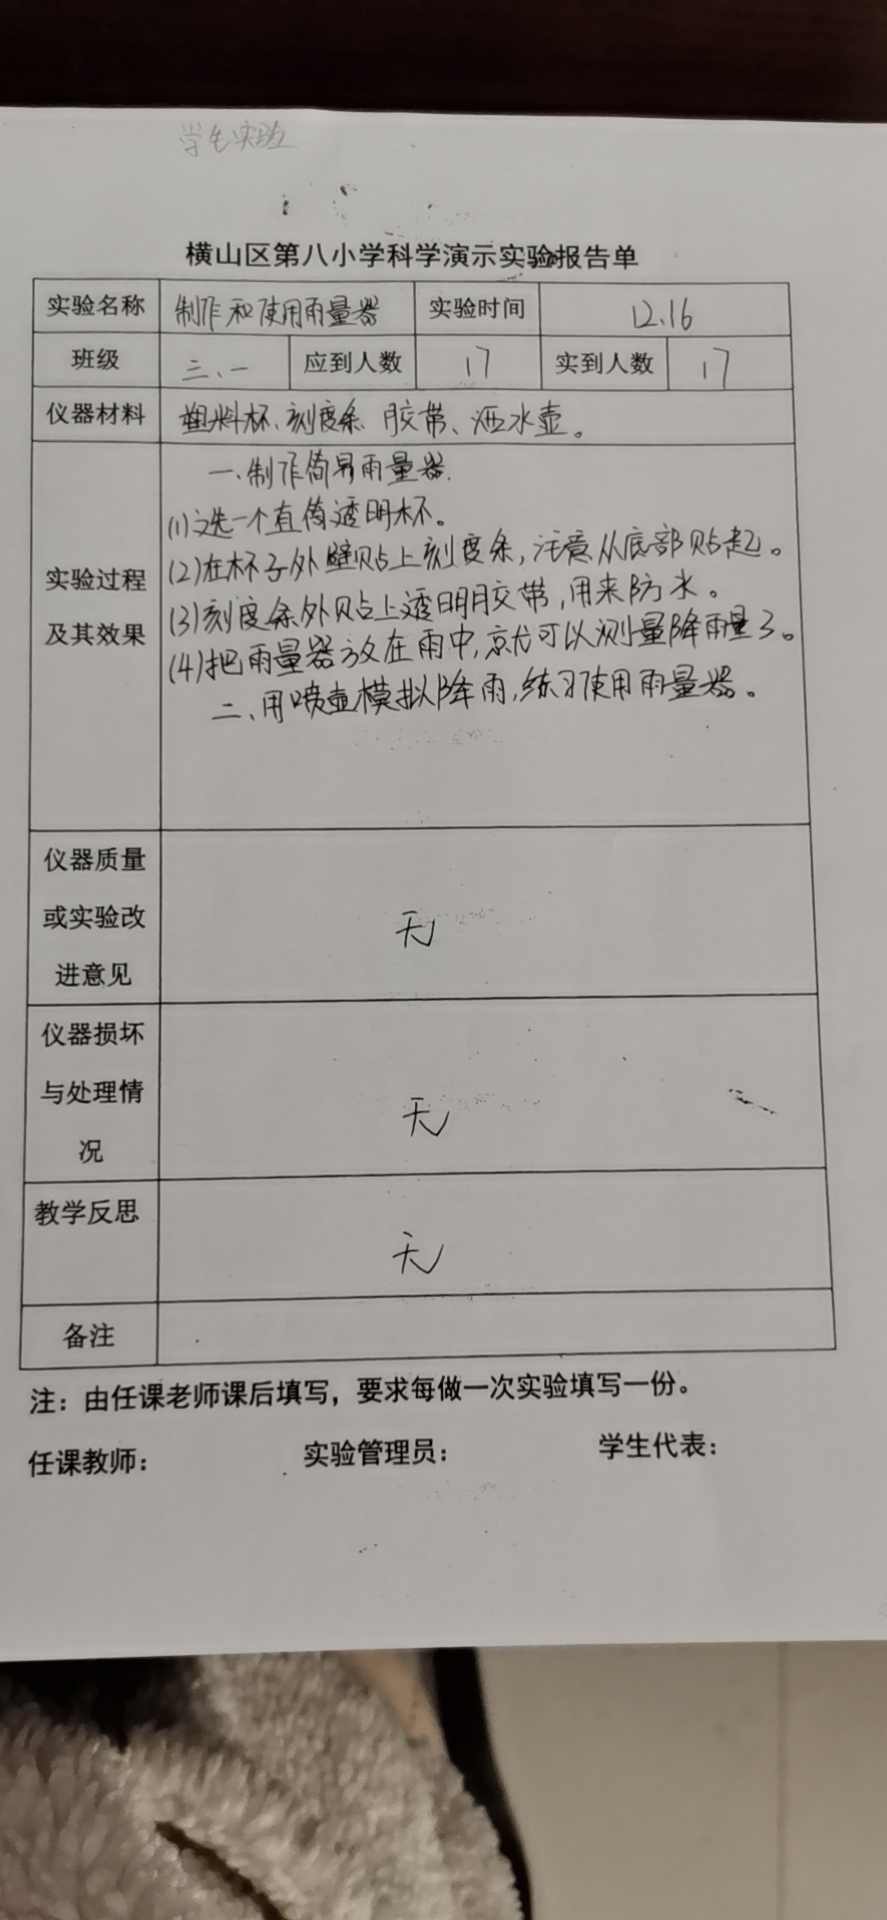 学生实验
横山区第八小学科学演示实验报告单
实验名称 制作和使用雨量器 实验时间 12.16
班级 三、一 应到人数 17 实到人数 17
仪器材料 塑料杯、刻度条、胶带、洒水壶。
一、制作简易雨量器.
(1)选一个直筒透明杯。
(2)在杯子外壁贴上刻度条,注意从底部贴起。
实验过程
及其效果
(3)刻度条外贴上透明胶带,用来防水。
(4)把雨量器放在雨中,就可以测量降雨量了。
二、用喷壶模拟降雨,练习使用雨量器。
仪器质量
或实验改
进意见
无
仪器损坏
与处理情
况
无
教学反思
无
备注
注：由任课老师课后填写，要求每做一次实验填写一份。
任课教师： 实验管理员： 学生代表：